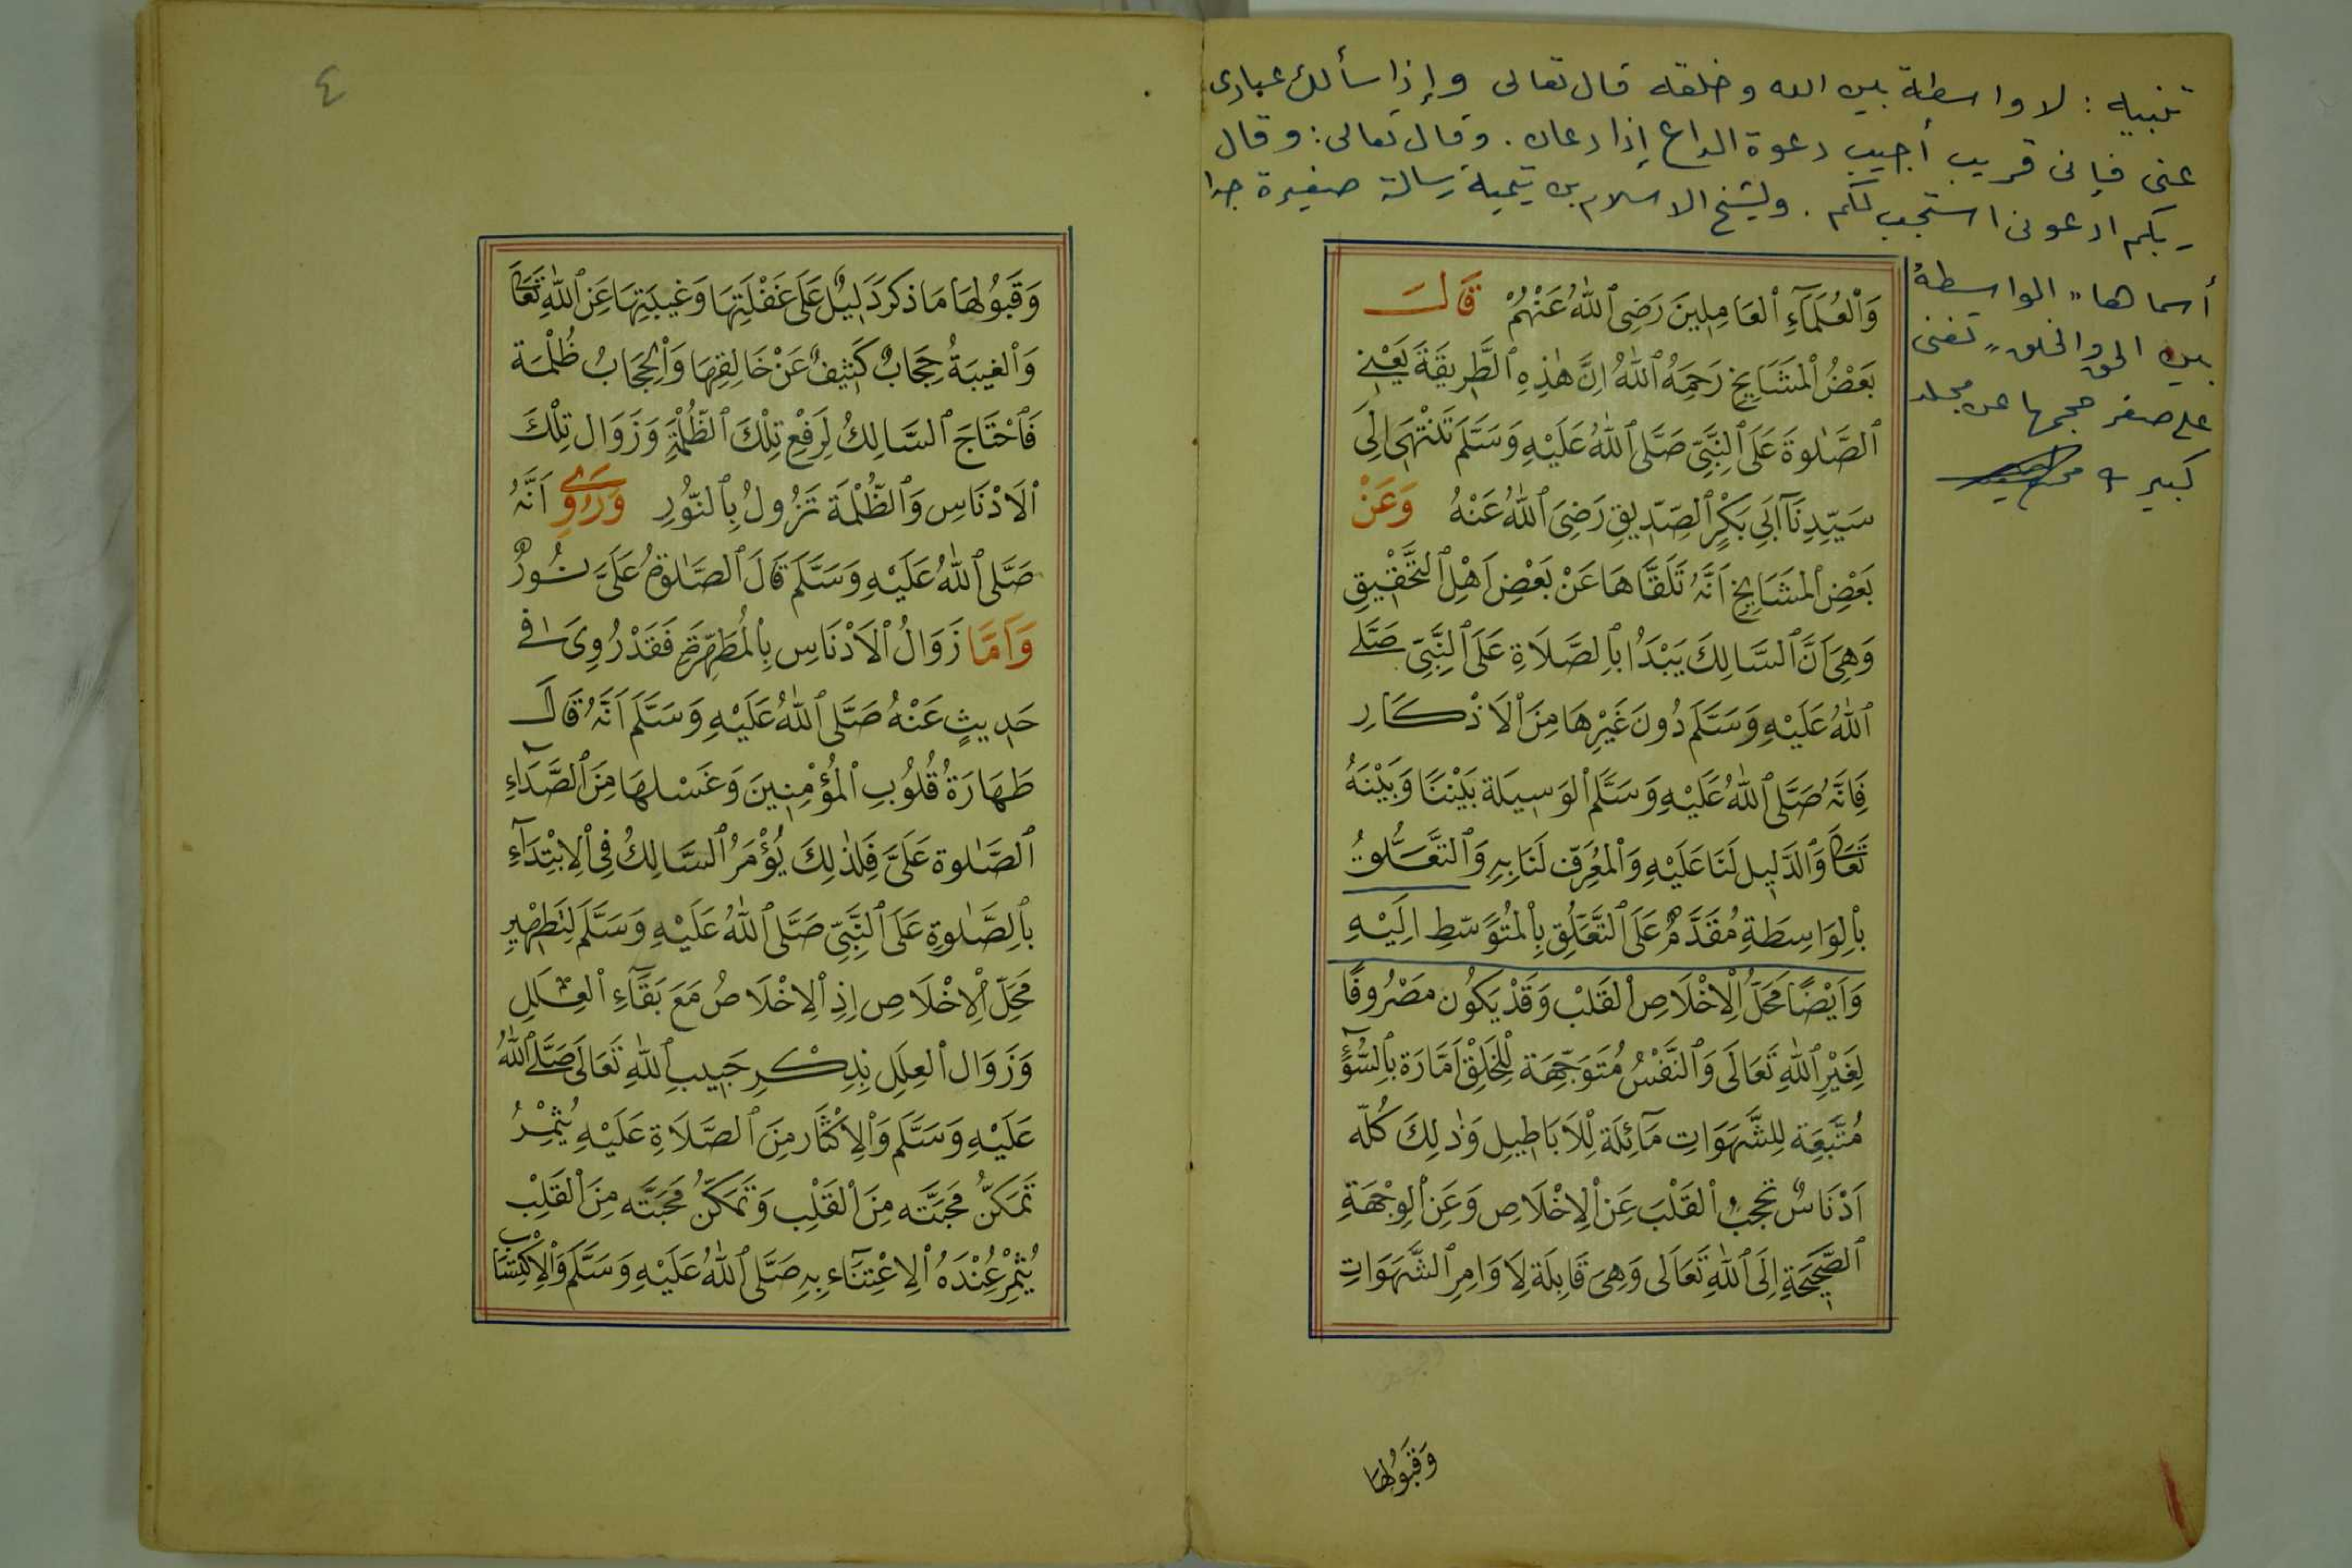 تنبيه : لا واسطة بين الله وخلقه قال تعالى وإذا سألك عبادى
عنى فإنى قريب أجيب دعوة الداع إذا دعان . وقال تعالى : وقال
ربكم ادعونى استجب لكم . ولشيخ الاسلام بن تيمية رسالة صغيرة جدا
أسماها " الواسطة
بين الحق والخلق " تغنى
على صغر حجمها عن مجلد
كبير
وَالْعُلَمَآءِ الْعَامِلِينَ رَضِىَ اللّٰهُ عَنْهُمْ قَالَ
بَعْضُ الْمَشَايِخِ رَحِمَهُ اللّٰهُ اِنَّ هٰذِهِ الطَّرِيقَةَ يَعْنِى
الصَّلٰوةَ عَلَى النَّبِىِّ صَلَّى اللّٰهُ عَلَيْهِ وَسَلَّمَ تَنْتَهِى اِلَى
سَيِّدِنَا اَبِى بَكْرٍ الصِّدِّيقِ رَضِىَ اللّٰهُ عَنْهُ وَعَنْ
بَعْضِ الْمَشَايِخِ اَنَّهُ تَلَقَّاهَا عَنْ بَعْضِ اَهْلِ التَّحْقِيقِ
وَهِىَ اَنَّ السَّالِكَ يَبْدَاُ بِالصَّلَاةِ عَلَى النَّبِىِّ صَلَّى
اللّٰهُ عَلَيْهِ وَسَلَّمَ دُونَ غَيْرِهَا مِنَ الْاَذْكَارِ
فَاِنَّهُ صَلَّى اللّٰهُ عَلَيْهِ وَسَلَّمَ الْوَسِيلَة بَيْنَنَا وَبَيْنَهُ
تَعَالَى وَالدَّلِيل لَنَا عَلَيْهِ وَالْمُعَرِّف لَنَا بِهِ وَالتَّعَلُّقُ
بِالْوَاسِطَةِ مُقَدَّمٌ عَلَى التَّعَلُّقِ بِالْمُتَوَسّطِ اِلَيْهِ
وَاَيْضًا مَحَلُّ الْاِخْلَاصِ الْقَلْبُ وَقَدْ يَكُون مَصْرُوفًا
لِغَيْرِ اللّٰهِ تَعَالَى وَالنَّفْسُ مُتَوَجِّهَة لِلْخَلْقِ اَمَّارَة بِالسُّوٓءِ
مُتَّبَعَة لِلشَّهَوَاتِ مَآئِلَة لِلْاَبَاطِيلِ وَذٰلِكَ كُلّه
اَدْنَاسٌ تحجبُ الْقَلْبَ عَنِ الْاِخْلَاصِ وَعَنِ الْوِجْهَةِ
الصَّحِيحَةِ اِلَى اللّٰهِ تَعَالَى وَهِىَ قَابِلَة لِاَوَامِرِ الشَّهَوَاتِ
وَقَبُولُهَا
٤
وَقَبُولُهَا مَا ذكرَ دَلِيلٌ عَلَى غَفْلَتِهَا وَغَيبَتِهَا عَنِ اللّٰهِ تَعَالَى
وَالْغيبَةُ حِجَابٌ كَثِيفٌ عَنْ خَالِقِهَا وَالْحِجَابُ ظُلْمَة
فَاحْتَاجَ السَّالِكُ لِرَفْعِ تِلْكَ الظُّلْمَةِ وَزَوَال تِلْكَ
الْاَدْنَاسِ وَالظُّلْمَة تَزُولُ بِالنُّورِ وَرُوِىَ اَنَّهُ
صَلَّى اللّٰهُ عَلَيْهِ وَسَلَّمَ قَالَ الصَّلٰوةُ عَلَىَّ نُورٌ
وَاَمَّا زَوَالُ الْاَدْنَاسِ بِالْمُطَهِّرَةِ فَقَدْ رُوِىَ فِى
حَدِيثٍ عَنْهُ صَلَّى اللّٰهُ عَلَيْهِ وَسَلَّمَ اَنَّهُ قَالَ
طَهَارَةُ قُلُوبِ الْمُؤْمِنِينَ وَغَسْلهَا مِنَ الصَّدَآءِ
الصَّلٰوة عَلَىَّ فَلِذٰلِكَ يُؤْمَرُ السَّالِكُ فِى الْاِبْتِدَآءِ
بِالصَّلٰوةِ عَلَى النَّبِىِّ صَلَّى اللّٰهُ عَلَيْهِ وَسَلَّمَ لِتَطْهِيرِ
مَحَلّ الْاِخْلَاصِ اِذِ الْاِخْلَاصُ مَعَ بَقَآءِ الْعِلَلِ
وَزَوَال الْعِلَل بِذِكْرِ حَبِيبِ اللّٰهِ تَعَالَى صَلَّى اللّٰهُ
عَلَيْهِ وَسَلَّمَ وَالْاِكْثَار مِنَ الصَّلَاةِ عَلَيْهِ يُثْمِرُ
تَمَكُّنَ مَحَبَّتَه مِنَ الْقَلْبِ وَتَمَكُّنُ مَحَبَّتَه مِنَ الْقَلْبِ
يُثْمِرُ عِنْدَهُ الْاِعْتِنَآء بِهِ صَلَّى اللّٰهُ عَلَيْهِ وَسَلَّمَ وَالْاِكْتِسَاب